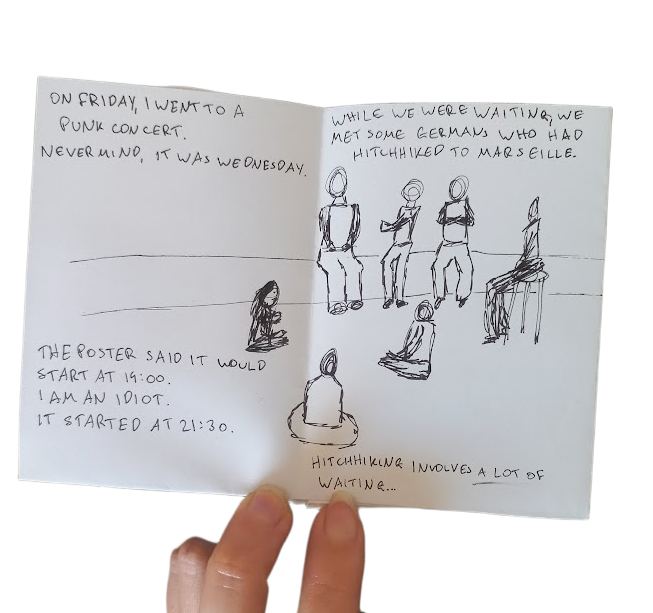 ON FRIDAY, I WENT TO A
PUNK CONCERT.
NEVERMIND, IT WAS WEDNESDAY.
THE POSTER SAID IT WOULD
START AT 19:00.
I AM AN IDIOT.
IT STARTED AT 21:30.
WHILE WE WERE WAITING, WE
MET SOME GERMANS WHO HAD
HITCHHIKED TO MARSEILLE.
HITCHHIKING INVOLVES A LOT OF
WAITING...